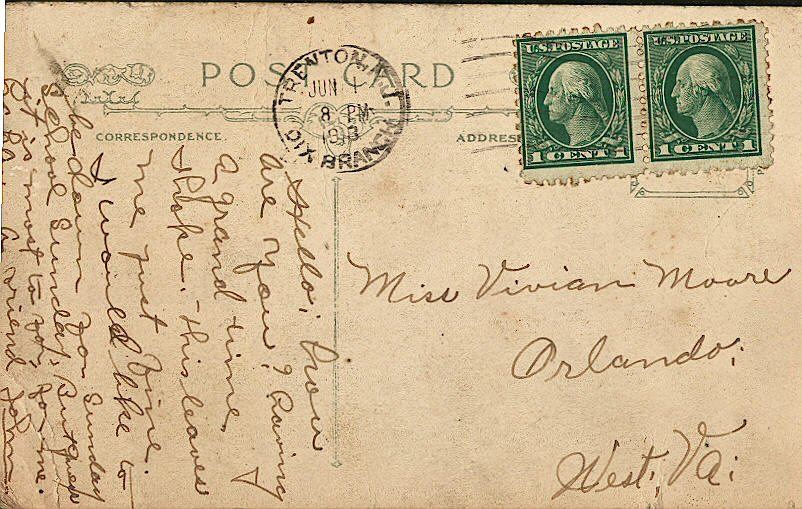 POST CARD
TRENTON, N.J.
JUN 1
8 PM
DIX BRANCH
U.S. POSTAGE
1 CENT 1
U.S. POSTAGE
1 CENT 1
CORRESPONDENCE.
ADDRESS
Hello, how
are you? Having
a grand time, I
hope. - this leaves
me just fine.
I would like to
be down for Sunday
school Sunday, But guess
it is most to far for me.
friend John
Miss Vivian Moore
Orlando,
West, Va: